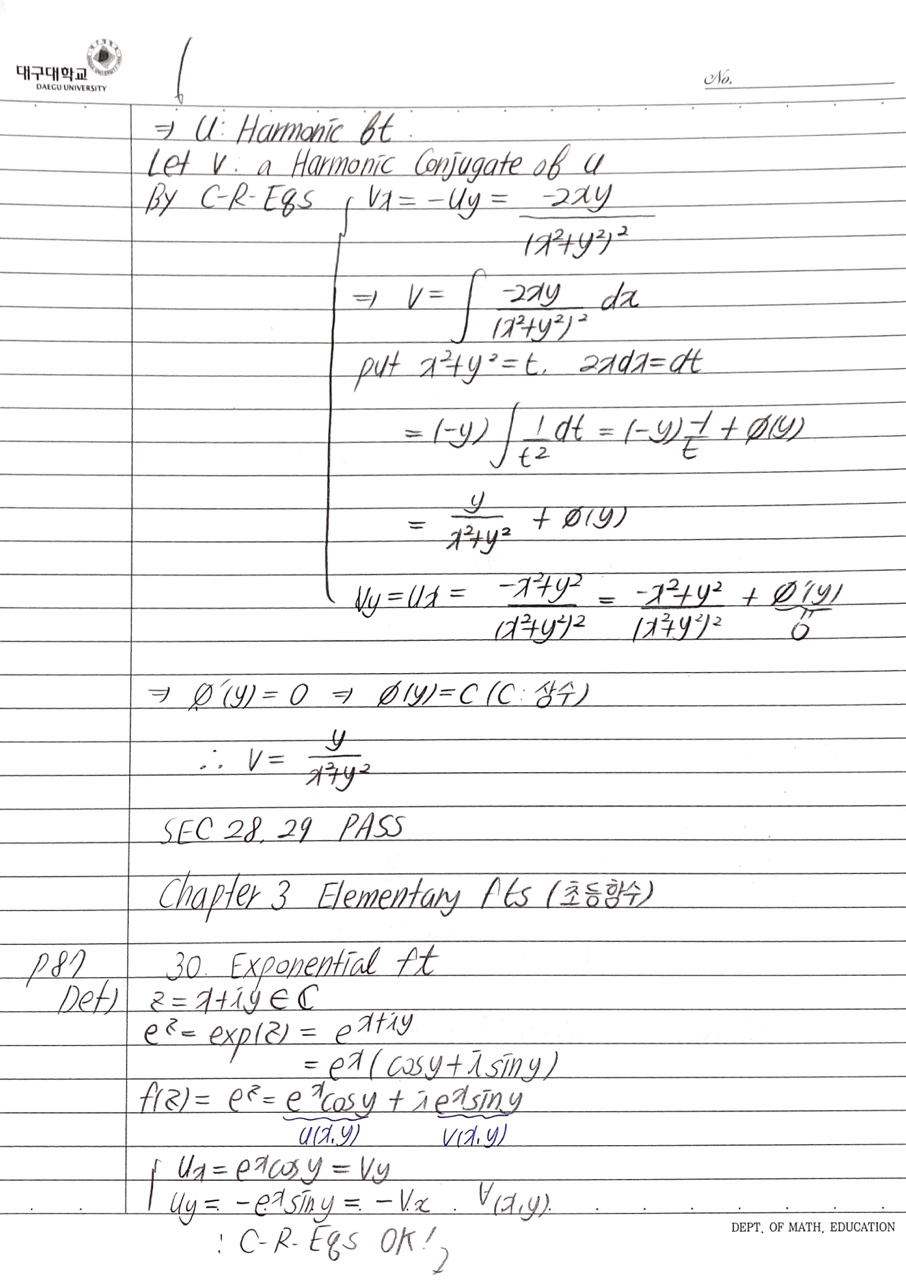 대구대학교
DAEGU UNIVERSITY
No.
⇒ U: Harmonic ft.
Let V: a Harmonic Conjugate of U
By C-R-Eqs { Vx = -Uy = -2xy / (x²+y²)²
⇒ V = ∫ -2xy / (x²+y²)² dx
put x²+y² = t, 2xdx = dt
= (-y) ∫ 1/t² dt = (-y) -1/t + Ø(y)
= y / x²+y² + Ø(y)
Vy = Ux = -x²+y² / (x²+y²)² = -x²+y² / (x²+y²)² + Ø'(y)
0
⇒ Ø'(y) = 0 ⇒ Ø(y) = C (C: 상수)
∴ V = y / x²+y²
SEC 28, 29 PASS
Chapter 3 Elementary fts (초등함수)
p87 30. Exponential ft
Def) z = x+iy ∈ ℂ
e^z = exp(z) = e^x+iy
= e^x (cosy + i siny)
f(z) = e^z = e^x cosy + i e^x siny
U(x,y) V(x,y)
{ Ux = e^x cosy = Vy
Uy = -e^x siny = -Vx . ∀(x,y).
: C-R-Eqs OK!
DEPT. OF MATH. EDUCATION